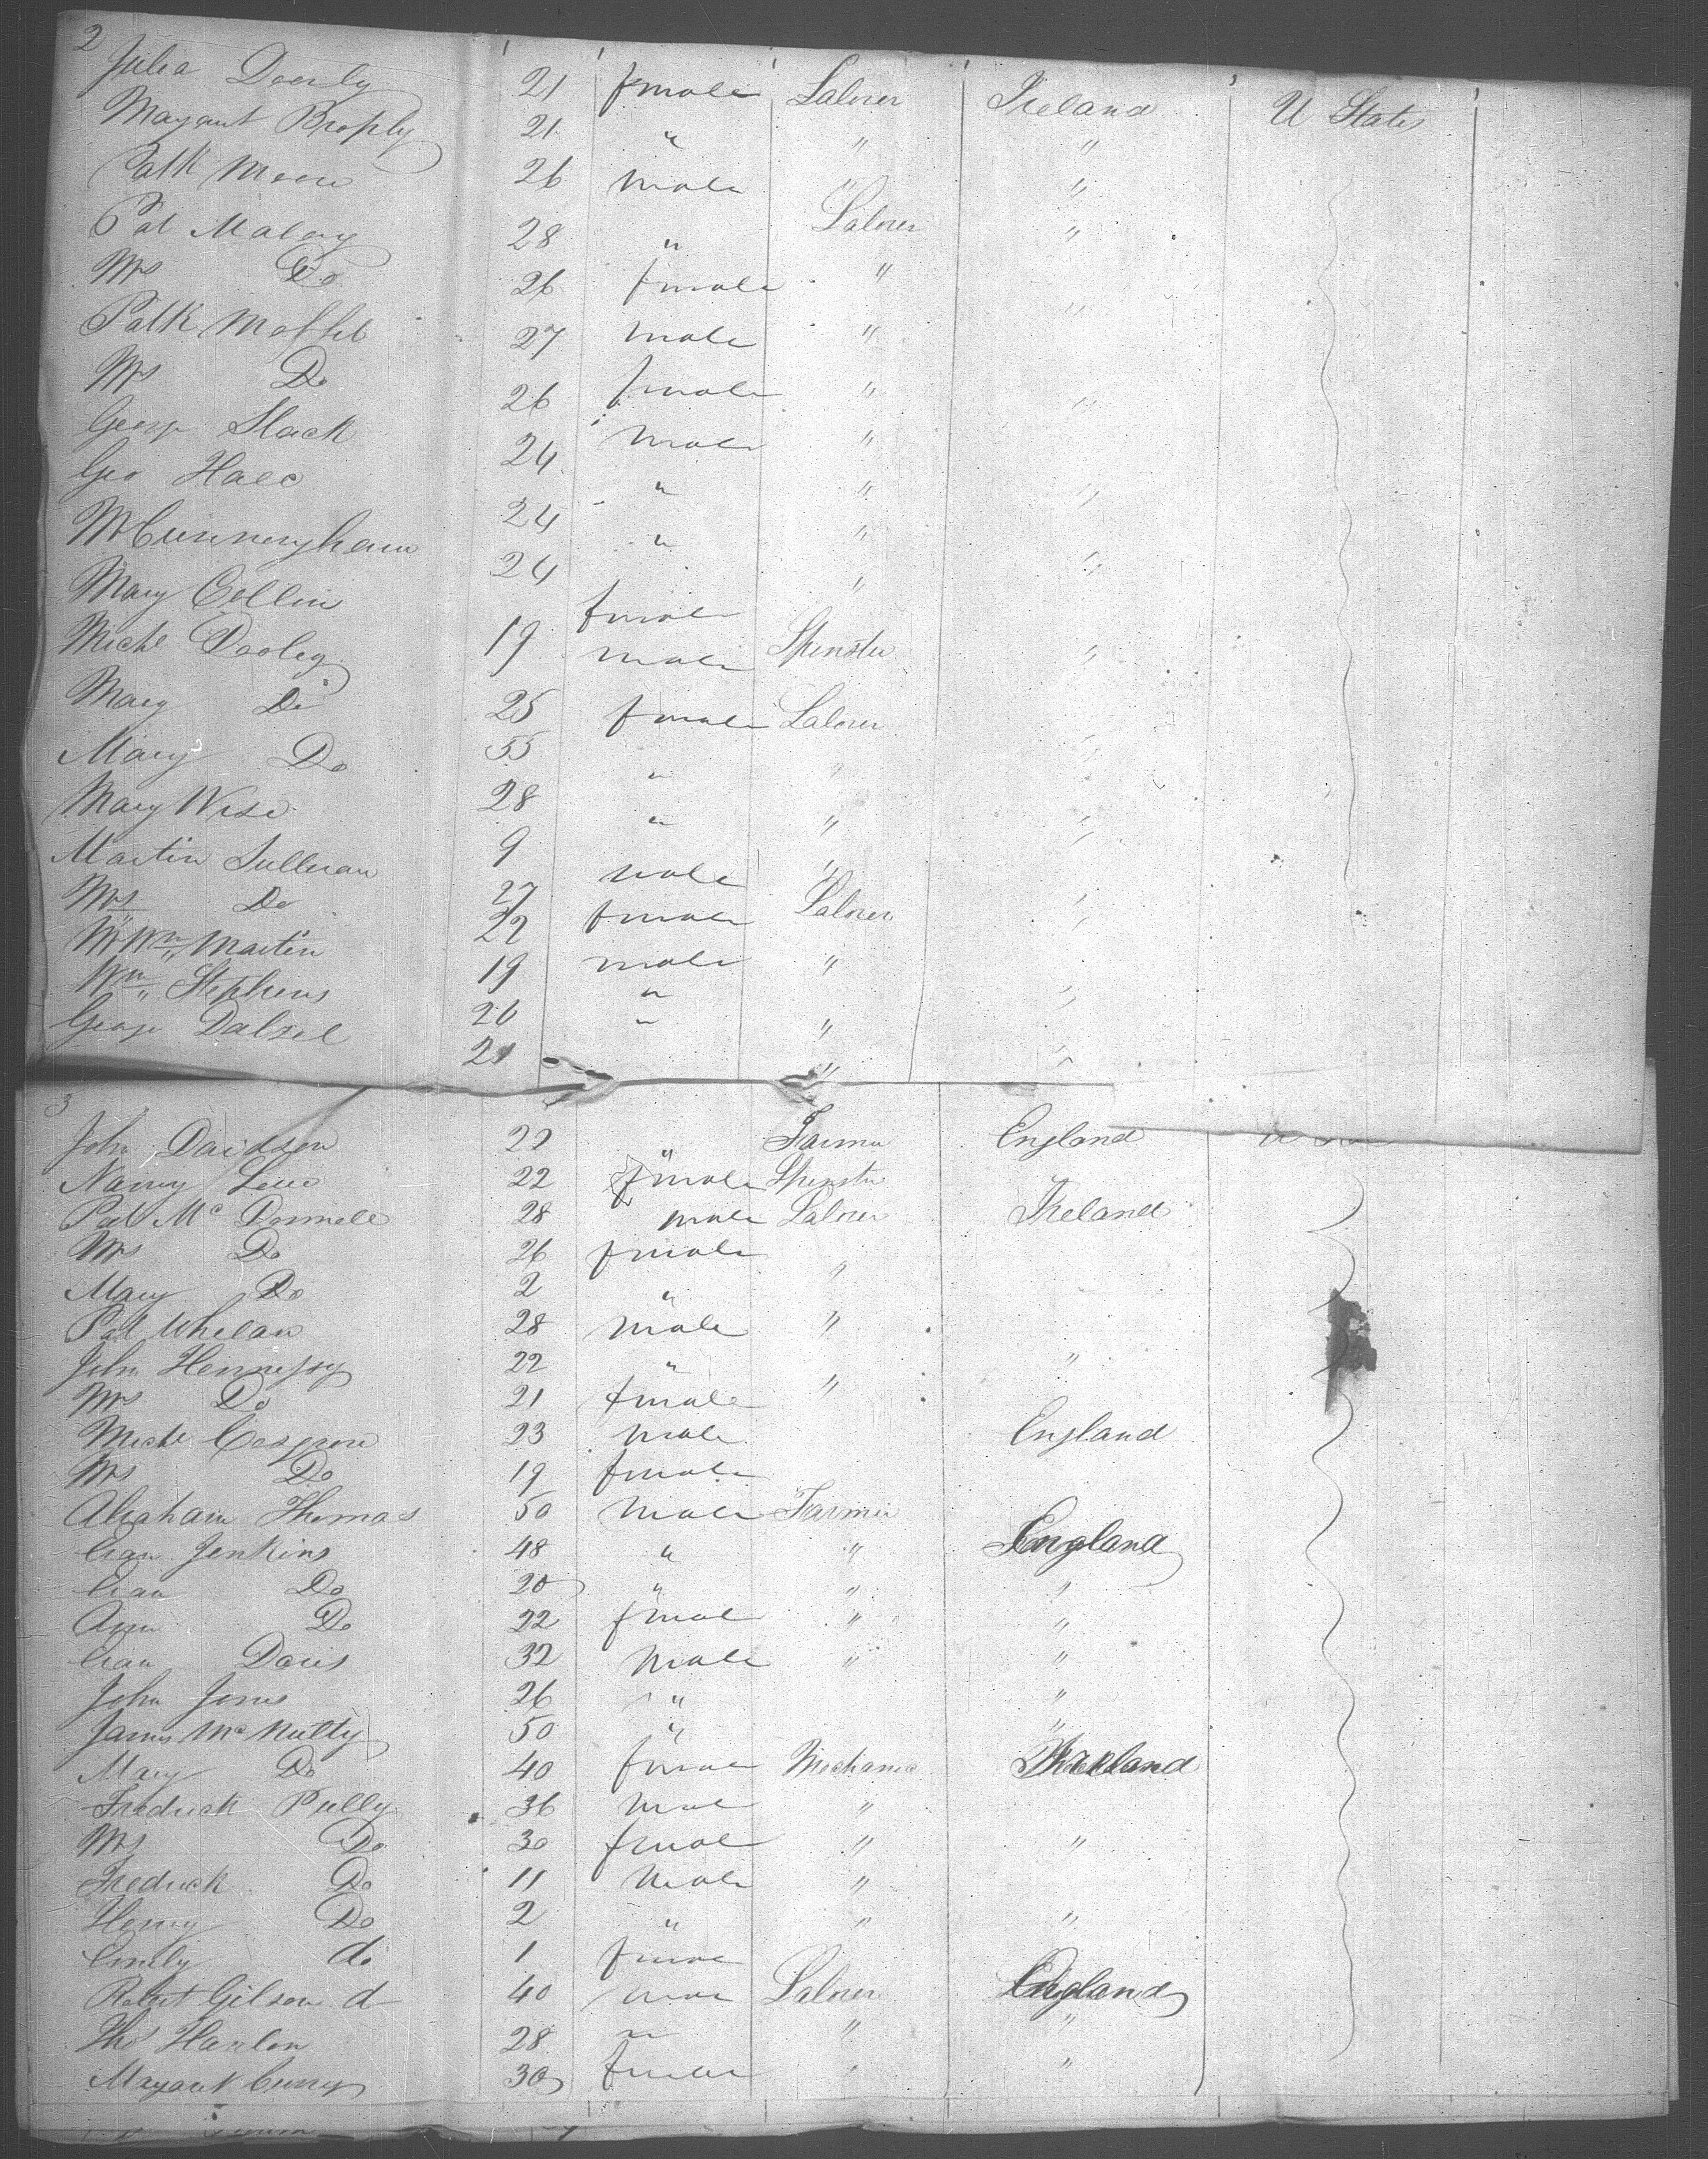 2
Julia Doorly 21 female Laborer Ireland U States
Margaret Brophy 21 " " "
Patk Moore 26 male " "
Pat Malary 28 " Laborer "
Mrs Do 26 female "
Patk Moffet 27 male " "
Mrs Do 26 female "
George Slack 24 male " "
Geo Hale 24 " "
W Cunningham 24 " "
Mary Collin 19 female Spinster
Michl Dooley 25 male Laborer "
Mary Do 55 female
Mary Do 28 " " "
Mary Wise 9 " " "
Martin Sullivan 27 male Laborer "
Mrs Do 22 female
Wm Martin 19 male "
Wm Stephens 26 " "
George Dalzel 21 " " "
3
John Davidson 22 " Farmer England
Nancy 22 female Spinster
Pat Mc Donnell 28 male Laborer Ireland
Mrs Do 26 female
Mary Do 2 " "
Pat Whelan 28 male "
John Hennessy 22 " "
Mrs Do 21 female "
Michl Cosgrove 23 male England
Mrs Do 19 female
Abraham Thomas 50 male Farmer
Evan Jenkins 48 " " England
Evan Do 20 " " "
Ann Do 22 female " "
Evan Davis 32 male " "
John Jones 26 " "
James Mc Nulty 50 " "
Mary Do 40 female Mechanic
Fredrick Pully 36 male "
Mrs Do 30 female " "
Fredrick Do 11 male "
Henry Do 2 " " "
Emily do 1 female
Robert Gilson d 40 male Laborer England
Thos Hanlon 28 " " "
Margaret Curry 30 female " "